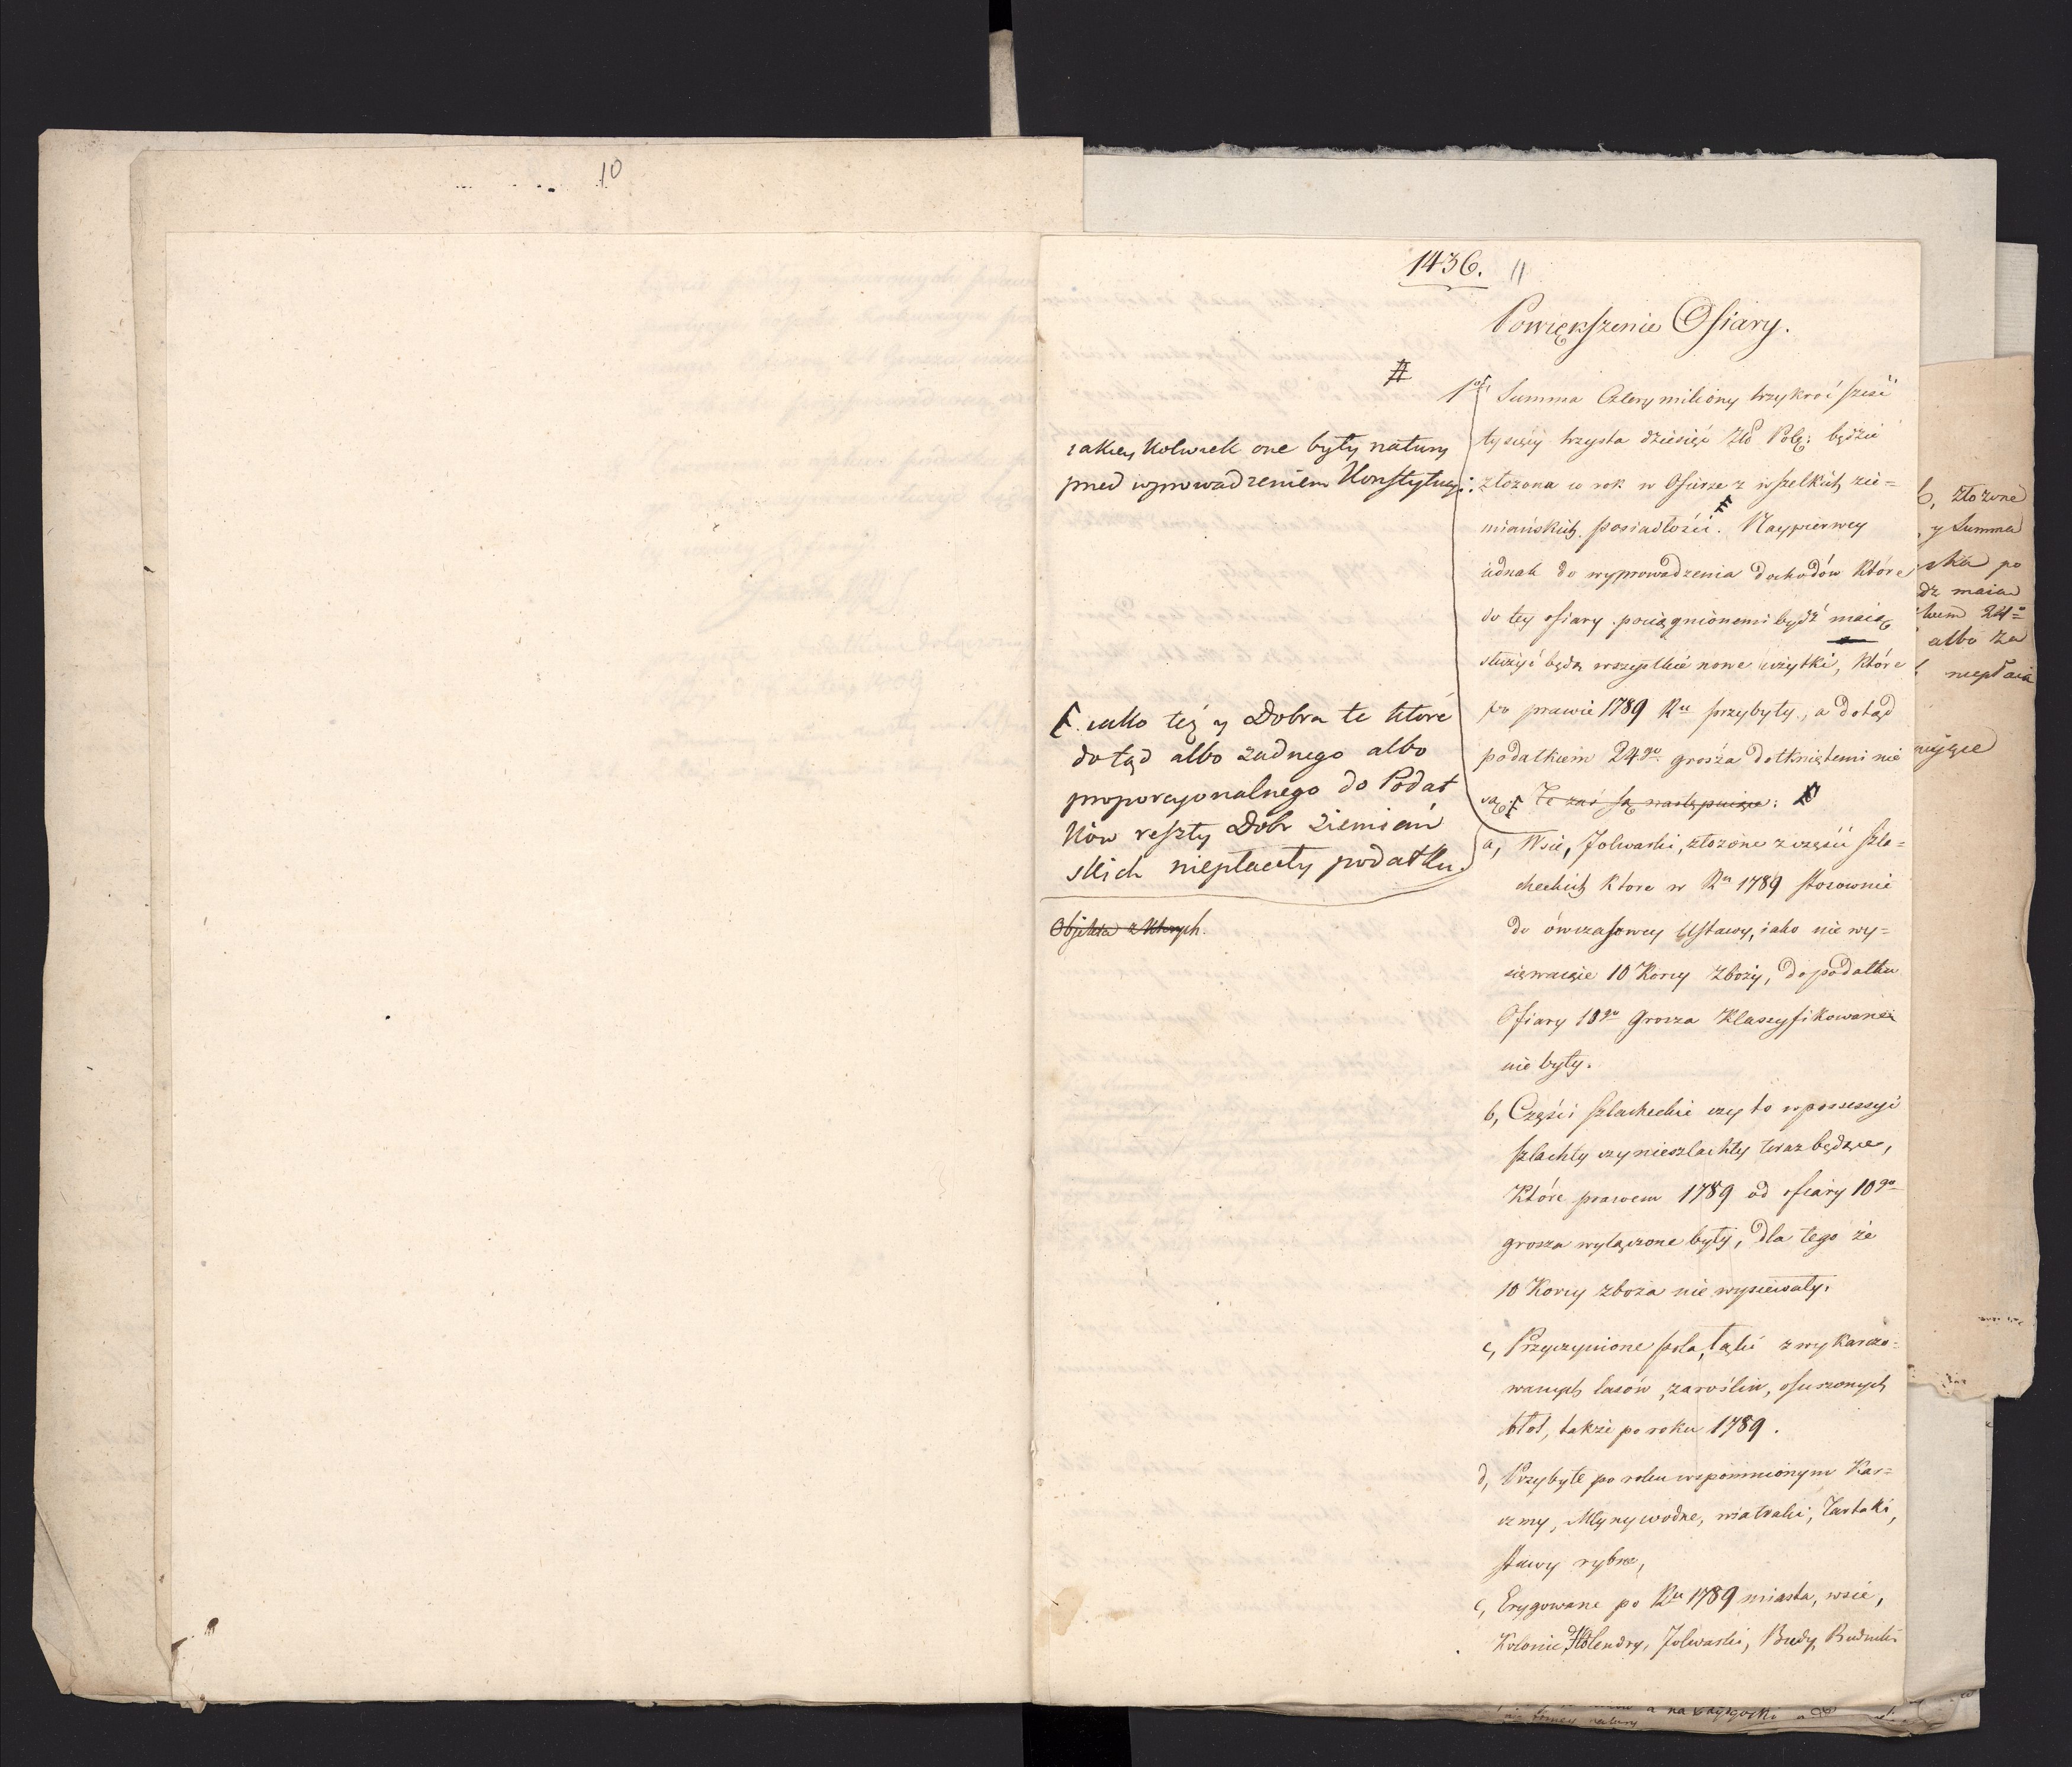 10
1436. 11
Powiększenie Ofiary.
#
1o, Summa Cztery miliony trzykroć sześć
tysięcy trzysta dziesięć Zło Pols: będzie
złożona co rok w Ofierze z wszelkich zie=
miańskich posiadłości. Naypierwey
iednak do wyprowadzenia dochodów które
do tey ofiary pociągnionemi bydź maią
służyć będą wszystkie nowe użytki, które
po prawie 1789 Ru przybyły, a dotąd
podatkiem 24go grosza dotkniętemi nie
są. Te zaś są następuiące:
iakiey kolwiek one były natury
przed wprowadzeniem Konstytucyi:
iako też y Dobra te które
dotąd albo żadnego albo
proporcyonalnego do Podat
ków reszty Dobr Ziemiań
skich niepłaciły podatku.
Objekta z których
a, Wsie, Folwarki, złożone z części szla=
checkich które w Ru 1789 stosownie
do ówczasowey Ustawy, iako nie wy=
siewaiące 10 Korcy Zboży, do podatku
Ofiary 10go Grosza Klassyfikowane
nie były.
b, Części szlacheckie czy to w possessyi
szlachty czy nieszlachty teraz będące,
Które prawem 1789 od ofiary 10go
grosza wyłączone były, dla tego że
10 Korcy zboża nie wysiewały.
c, Przyczynione pola, łąki z wykarczo=
wanych lasów, zaroślin, osuszonych
błot, także po roku 1789.
d, Przybyłe po roku wspomnionym Kar=
czmy, Młyny wodne, wiatraki, Tartaki,
stawy rybne,
e, Erygowane po Ru 1789 miasta, wsie,
Kolonie, Holendry, Folwarki, Budy, Rudniki
złożone
y Summa
po
maia
24
albo za
niepłaca